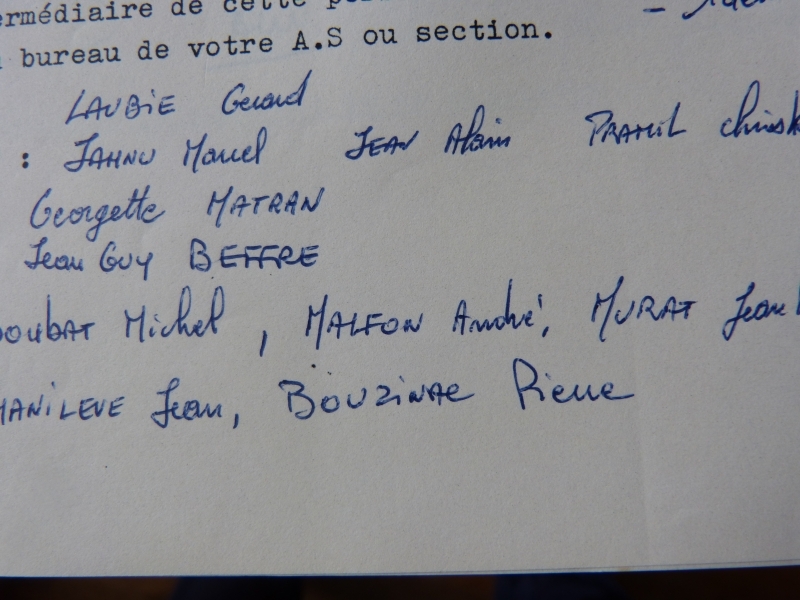 ermédiaire de cette
bureau de votre A.S ou section.
LAUBIE Gerard
: JAHNU Marcel JEAN Alain PRAMIL
Georgette MATRAN
Jean Guy BEFFRE
Michel , MALFON André, MURAT Jean
MANILEVE Jean, BOUZINAC Pierre